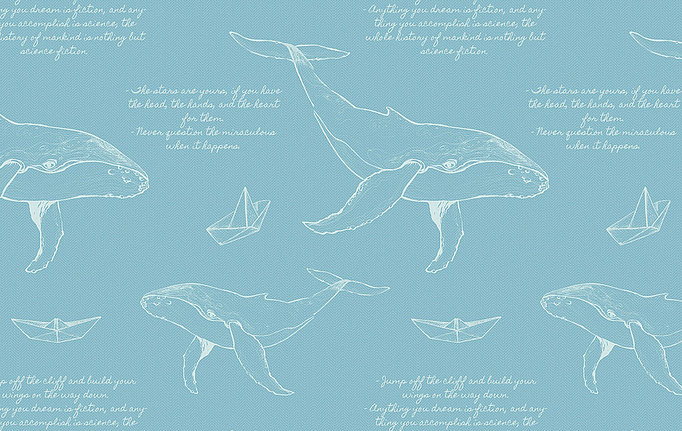 - Anything you dream is fiction, and any-
ng you dream is fiction, and any-
thing you accomplish is science, the
you accomplish is science, the
whole history of mankind is nothing but
istory of mankind is nothing but
science fiction.
science fiction.
- The stars are yours, if you have
the head, the hands, and the heart
for them.
- Never question the miraculous
when it happens.
- The stars are yours, if you have
the head, the hands, and the heart
for them.
- Never question the miraculous
when it happens.
off the cliff and build your
wings on the way down.
ng you dream is fiction, and any-
you accomplish is science, the
- Jump off the cliff and build your
wings on the way down.
- Anything you dream is fiction, and any-
thing you accomplish is science, the